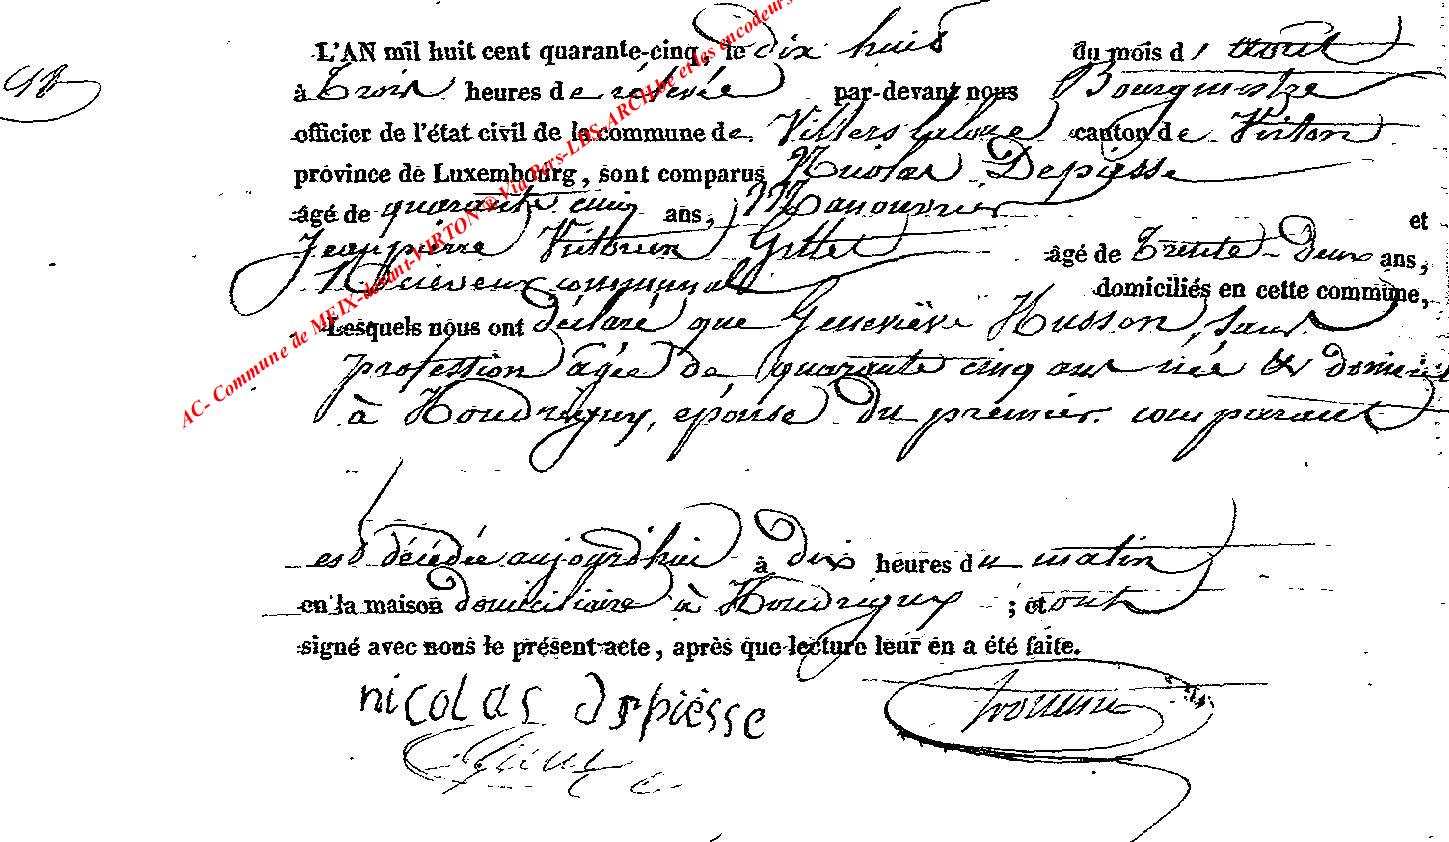 L'AN mil huit cent quarante-cinq, le dix huit du mois d'août
à Trois heures de rélévée par-devant nous Bourgmestre
officier de l'état civil de la commune de Villers laloue canton de Virton
province de Luxembourg, sont comparus Nicolas Depiesse
âgé de quarante cinq ans, Manouvrier et
Jean pierre Gillet âgé de Trente-Deux ans,
Réceveur communal domiciliés en cette commune,
Lesquels nous ont déclaré que Geneviève Husson, sans
profession âgée de quarante cinq ans née & domiciliée
à Houdrigny, épouse du premier comparant
est décédée aujourd'hui à dix heures du matin
en la maison domiciliaire à Houdrigny ; et ont
signé avec nous le présent acte, après que lecture leur en a été faite.
nicolas depiesse
AC- Commune de MEIX-devant-VIRTON @ Via Pays-LBS-ARCH.be et les encodeurs